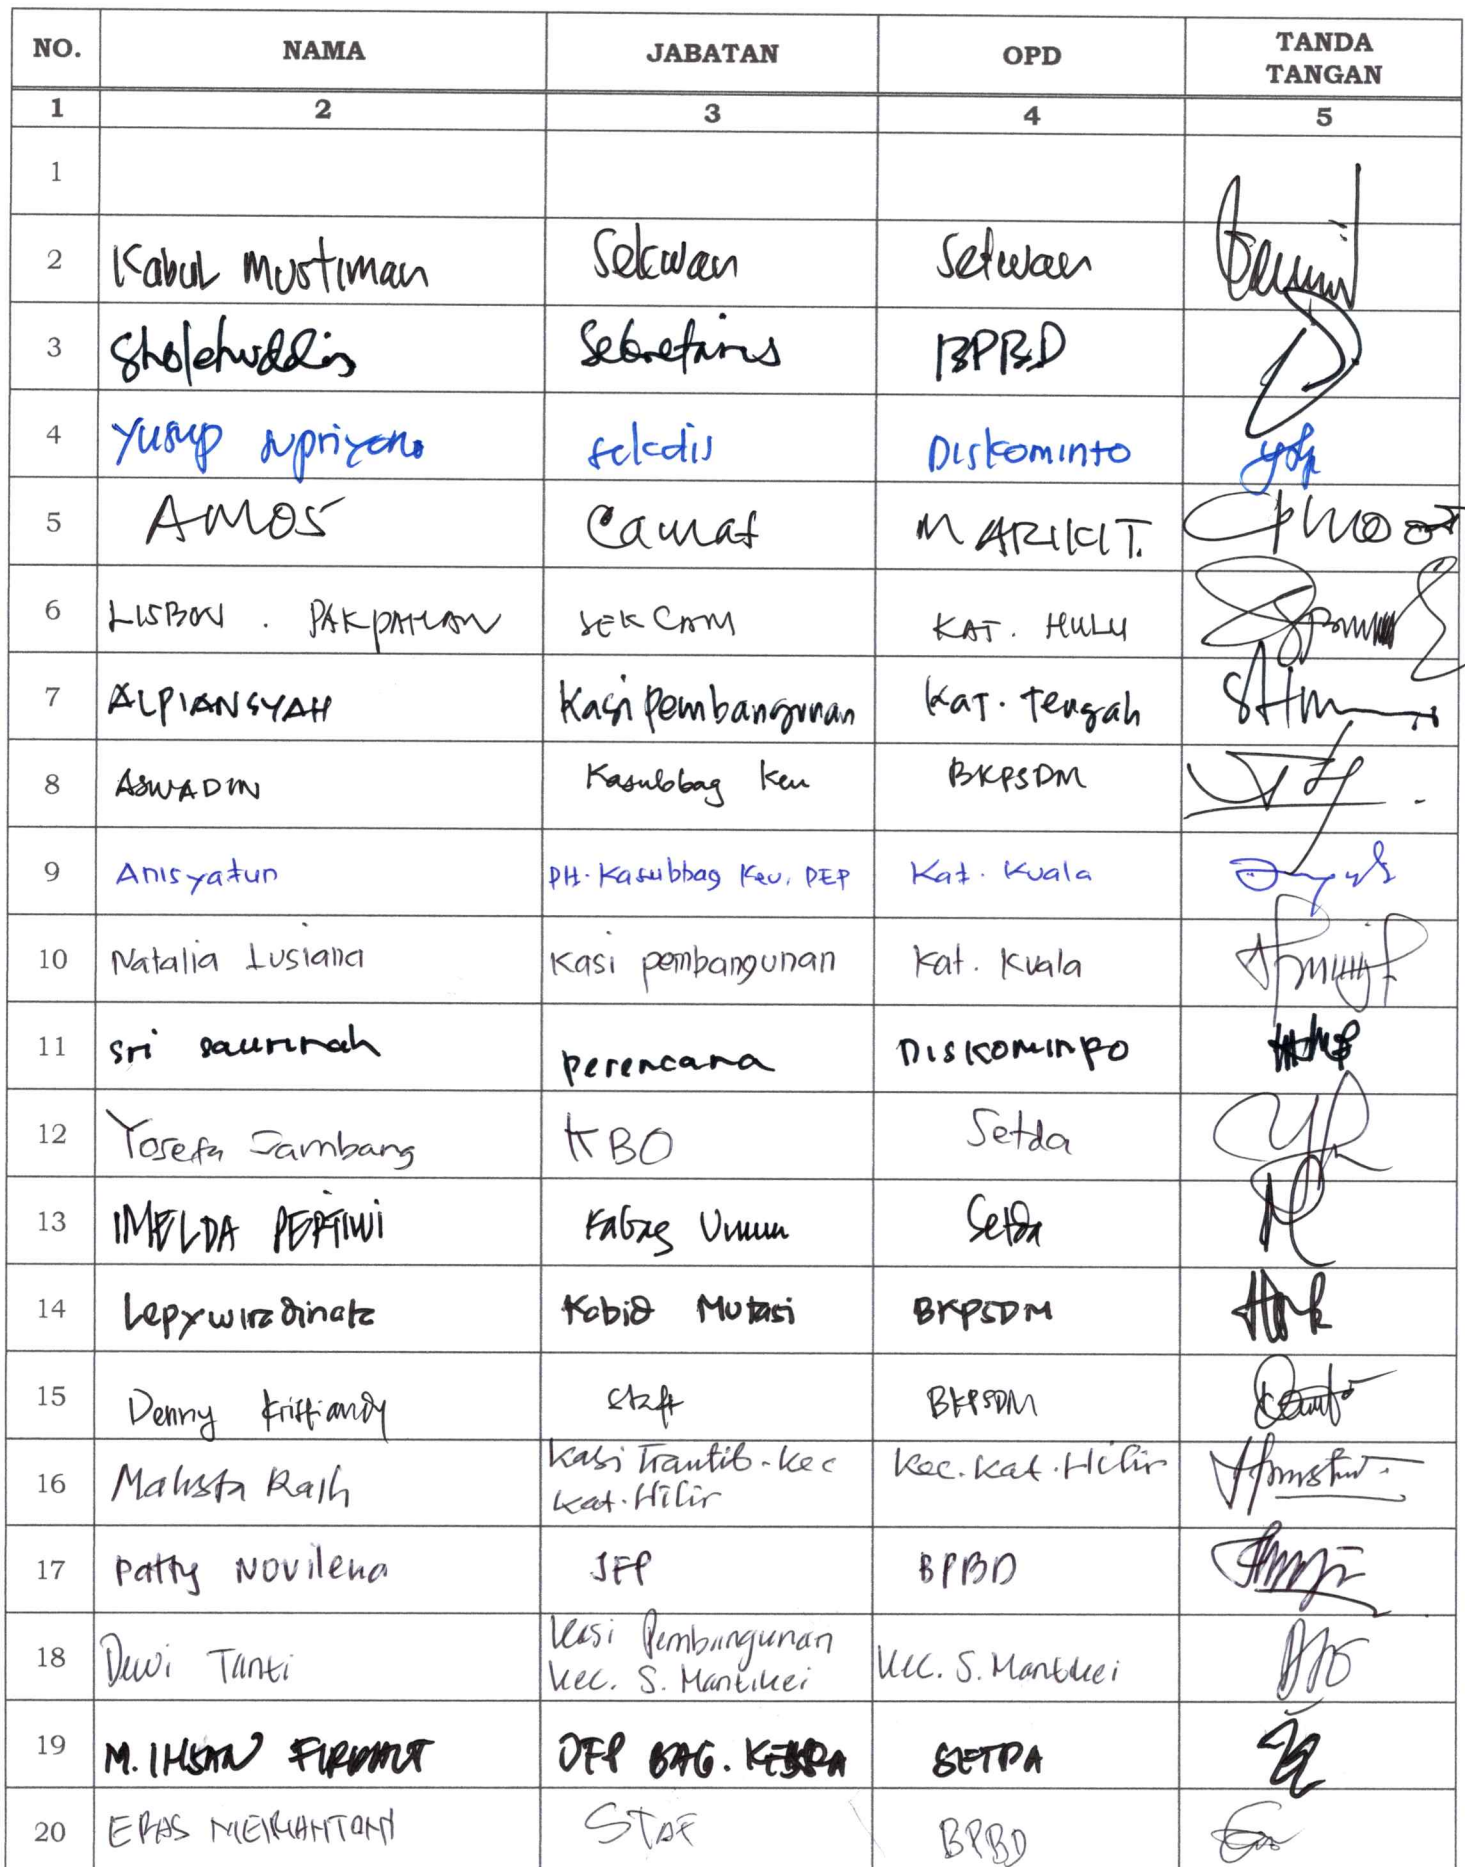 NO. NAMA JABATAN OPD TANDA
TANGAN
1 2 3 4 5
1
2 Kabul Mustiman Sekwan Setwan
3 Sholehuddin Sekretaris BPBD
4 Yusup Supriyono sekdis Diskominfo
5 AMOS Camat MARIKIT.
6 LISBON . PAKPAHAN SEKCAM KAT. HULU
7 ALPIANSYAH Kasi Pembangunan Kat. Tengah
8 ASWADIN Kasubbag Keu BKPSDM
9 Anisyatun PH. Kasubbag Keu. PEP Kat. Kuala
10 Natalia Lusiana Kasi pembangunan Kat. Kuala
11 Sri perencana DISKOMINFO
12 Yosefa Jambang KBO Setda
13 IMELDA PERTIWI Kabag Umum Setda
14 Lepywiradinata Kabid Mutasi BKPSDM
15 Denny Kristiandy Staf BKPSDM
16 Kasi Trantib - Kec Kec. Kat. Hilir
Kat. Hilir
17 Patty Novilena JFP BPBD
18 Dewi Tanti Kasi Pembangunan Kec. S. Mantikei
Kec. S. Mantikei
19 M. IHSAN BAG. KESRA SETDA
20 STAF BPBD